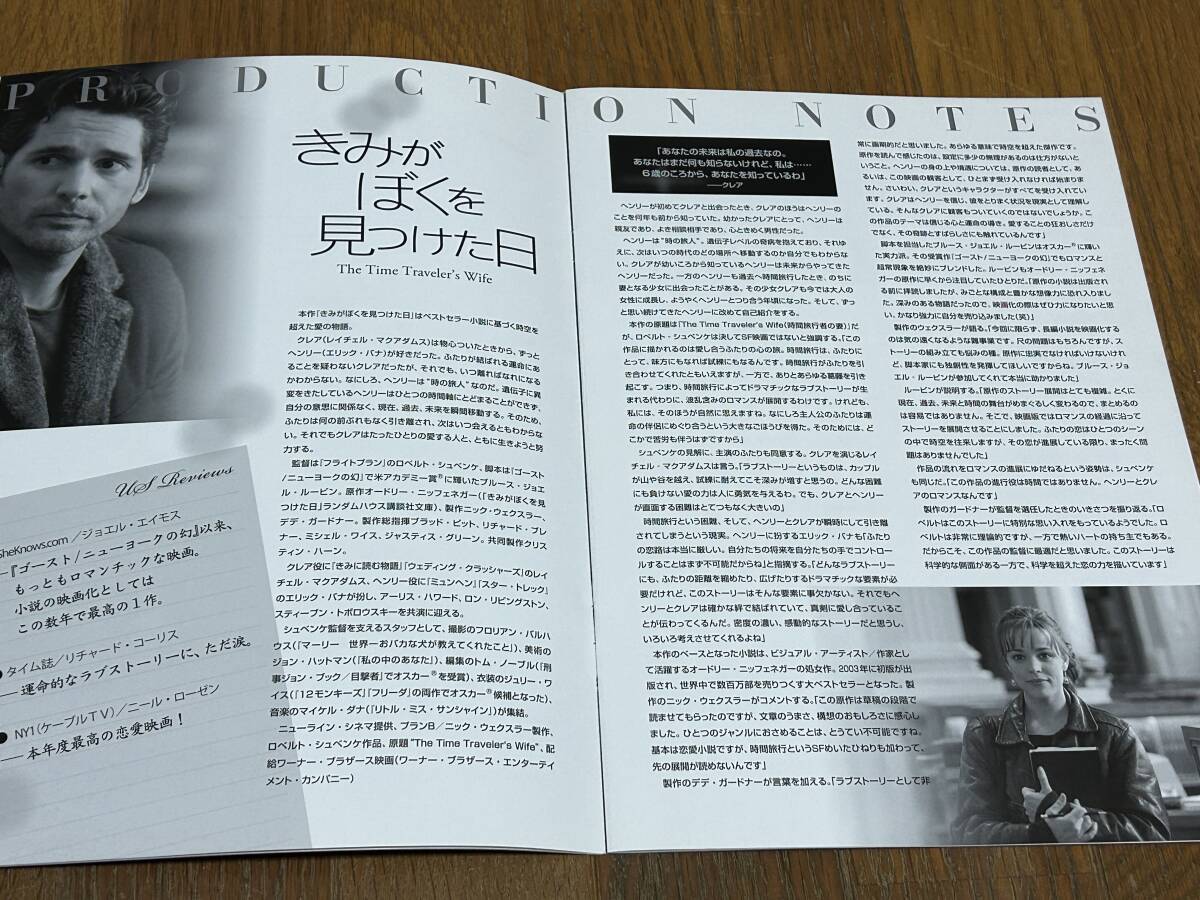 PRODUCTION NOTES
きみが
ぼくを
見つけた日
The Time Traveler's Wife
本作「きみがぼくを見つけた日」はベストセラー小説に基づく時空を
超えた愛の物語。
クレア(レイチェル・マクアダムス)は物心ついたときから、ずっと
ヘンリー(エリック・バナ)が好きだった。ふたりが結ばれる運命にあ
ることを疑わないクレアだったが、それでも、いつ離ればなれになる
かわからない。なにしろ、ヘンリーは“時の旅人”なのだ。遺伝子に異
変をきたしているヘンリーはひとつの時間軸にとどまることができず、
自分の意思に関係なく、現在、過去、未来を瞬間移動する。そのため、
ふたりは何の前ぶれもなく引き離され、次はいつ会えるともわからな
い。それでもクレアはたったひとりの愛する人と、ともに生きようと努
力する。
監督は「フライトプラン」のロベルト・シュベンケ、脚本は「ゴースト
/ニューヨークの幻」で米アカデミー賞®に輝いたブルース・ジョエ
ル・ルービン。原作オードリー・ニッフェネガー(「きみがぼくを見
つけた日」ランダムハウス講談社文庫)、製作ニック・ウェクスラー、
デデ・ガードナー。製作総指揮ブラッド・ピット、リチャード・ブレ
ナー、ミシェル・ワイス、ジャスティス・グリーン。共同製作クリス
ティン・ハーン。
クレア役に「きみに読む物語」「ウェディング・クラッシャーズ」のレイ
チェル・マクアダムス、ヘンリー役に「ミュンヘン」「スター・トレック」
のエリック・バナが扮し、アーリス・ハワード、ロン・リビングストン、
スティーブン・トボロウスキーを共演に迎える。
シュベンケ監督を支えるスタッフとして、撮影のフロリアン・バルハ
ウス(「マーリー 世界一おバカな犬が教えてくれたこと」)、美術の
ジョン・ハットマン(「私の中のあなた」)、編集のトム・ノーブル(「刑
事ジョン・ブック/目撃者」でオスカー®を受賞)、衣装のジュリー・ワ
イス(「12モンキーズ」「フリーダ」の両作でオスカー®候補となった)、
音楽のマイケル・ダナ(「リトル・ミス・サンシャイン」)が集結。
ニューライン・シネマ提供、プランB/ニック・ウェクスラー製作、
ロベルト・シュベンケ作品、原題“The Time Traveler's Wife”、配
給ワーナー・ブラザース映画(ワーナー・ブラザース・エンターテイ
メント・カンパニー)
US Reviews
SheKnows.com/ジョエル・エイモス
―『ゴースト/ニューヨークの幻』以来、
もっともロマンチックな映画。
小説の映画化としては
この数年で最高の1作。
●タイム誌/リチャード・コーリス
―運命的なラブストーリーに、ただ涙。
● NY1(ケーブルTV)/ニール・ローゼン
―本年度最高の恋愛映画!
「あなたの未来は私の過去なの。
あなたはまだ何も知らないけれど、私は……
6歳のころから、あなたを知っているわ」
――クレア
ヘンリーが初めてクレアと出会ったとき、クレアのほうはヘンリーの
ことを何年も前から知っていた。幼かったクレアにとって、ヘンリーは
親友であり、よき相談相手であり、心ときめく男性だった。
ヘンリーは“時の旅人”。遺伝子レベルの奇病を抱えており、それゆ
えに、次はいつの時代のどの場所へ移動するのか自分でもわからな
い。クレアが幼いころから知っているヘンリーは未来からやってきた
ヘンリーだった。一方のヘンリーも過去へ時間旅行したとき、のちに
妻となる少女に出会ったことがある。その少女クレアも今では大人の
女性に成長し、ようやくヘンリーとつり合う年頃になった。そして、ずっ
と思い続けてきたヘンリーに改めて自己紹介をする。
本作の原題は「The Time Traveler's Wife(時間旅行者の妻)」だ
が、ロベルト・シュベンケは決してSF映画ではないと強調する。「この
作品に描かれるのは愛し合うふたりの心の旅。時間旅行は、ふたりに
とって、味方にもなれば試練にもなるんです。時間旅行がふたりを引
き合わせてくれたともいえますが、一方で、ありとあらゆる葛藤を引き
起こす。つまり、時間旅行によってドラマチックなラブストーリーが生
まれる代わりに、波乱含みのロマンスが展開するわけです。けれども、
私には、そのほうが自然に思えますね。なにしろ主人公のふたりは運
命の伴侶にめぐり合うという大きなごほうびを得た。そのためには、ど
こかで苦労も伴うはずですから」
シュベンケの見解に、主演のふたりも同意する。クレアを演じるレイ
チェル・マクアダムスは言う。「ラブストーリーというものは、カップル
が山や谷を越え、試練に耐えてこそ深みが増すと思うの。どんな困難
にも負けない愛の力は人に勇気を与えるわ。でも、クレアとヘンリー
が直面する困難はとてつもなく大きいの」
時間旅行という困難、そして、ヘンリーとクレアが瞬時にして引き離
されてしまうという現実。ヘンリーに扮するエリック・バナも「ふたり
の恋路は本当に厳しい。自分たちの将来を自分たちの手でコントロー
ルすることはまず不可能だからね」と指摘する。「どんなラブストーリー
にも、ふたりの距離を縮めたり、広げたりするドラマチックな要素が必
要だけれど、このストーリーはそんな要素に事欠かない。それでもヘ
ンリーとクレアは確かな絆で結ばれていて、真剣に愛し合っているこ
とが伝わってくるんだ。密度の濃い、感動的なストーリーだと思うし、
いろいろ考えさせてくれるよね」
本作のベースとなった小説は、ビジュアル・アーティスト/作家とし
て活躍するオードリー・ニッフェネガーの処女作。2003年に初版が出
版され、世界中で数百万部を売りつくす大ベストセラーとなった。製
作のニック・ウェクスラーがコメントする。「この原作は草稿の段階で
読ませてもらったのですが、文章のうまさ、構想のおもしろさに感心し
ました。ひとつのジャンルにおさめることは、とうてい不可能ですね。
基本は恋愛小説ですが、時間旅行というSFめいたひねりも加わって、
先の展開が読めないんです」
製作のデデ・ガードナーが言葉を加える。「ラブストーリーとして非
常に画期的だと思いました。あらゆる意味で時空を超えた傑作です。
原作を読んで感じたのは、設定に多少の無理があるのは仕方がないと
いうこと。ヘンリーの身の上や境遇については、原作の読者として、あ
るいは、この映画の観客として、ひとまず受け入れなければ始まりま
せん。さいわい、クレアというキャラクターがすべてを受け入れてい
ます。クレアはヘンリーを信じ、彼をとりまく状況を現実として理解し
ている。そんなクレアに観客もついていくのではないでしょうか。こ
の作品のテーマは信じる心と運命の導き。愛することの狂おしさだけ
でなく、その奇跡とすばらしさにも触れているんです」
脚本を担当したブルース・ジョエル・ルービンはオスカー®に輝い
た実力派。その受賞作「ゴースト/ニューヨークの幻」でもロマンスと
超常現象を絶妙にブレンドした。ルービンもオードリー・ニッフェネ
ガーの原作に早くから注目していたひとりだ。「原作の小説は出版され
る前に拝読しましたが、みごとな構成と豊かな想像力に恐れ入りまし
た。深みのある物語だったので、映画化の際はぜひ力になりたいと思
い、かなり強気に自分を売り込みました(笑)」
製作のウェクスラーが語る。「今回に限らず、長編小説を映画化する
のは気の遠くなるような難事業です。尺の問題はもちろんですが、ス
トーリーの組み立ても悩みの種。原作に忠実でなければいけないけれ
ど、脚本家にも独創性を発揮してほしいですからね。ブルース・ジョ
エル・ルービンが参加してくれて本当に助かりました」
ルービンが説明する。「原作のストーリー展開はとても複雑。とくに
現在、過去、未来と時間の舞台がめまぐるしく変わるので、まとめるの
は容易ではありません。そこで、映画版ではロマンスの経過に沿って
ストーリーを展開させることにしました。ふたりの恋はひとつのシーン
の中で時空を往来しますが、その恋が進展している限り、まったく問
題はありませんでした」
作品の流れをロマンスの進展にゆだねるという姿勢は、シュベンケ
も同じだ。「この作品の進行役は時間ではありません。ヘンリーとクレ
アのロマンスなんです」
製作のガードナーが監督を選任したときのいきさつを振り返る。「ロ
ベルトはこのストーリーに特別な思い入れをもっているようでした。ロ
ベルトは非常に理論的ですが、一方で熱いハートの持ち主でもある。
だからこそ、この作品の監督に最適だと思いました。このストーリーは
科学的な側面がある一方で、科学を超えた恋の力を描いています」